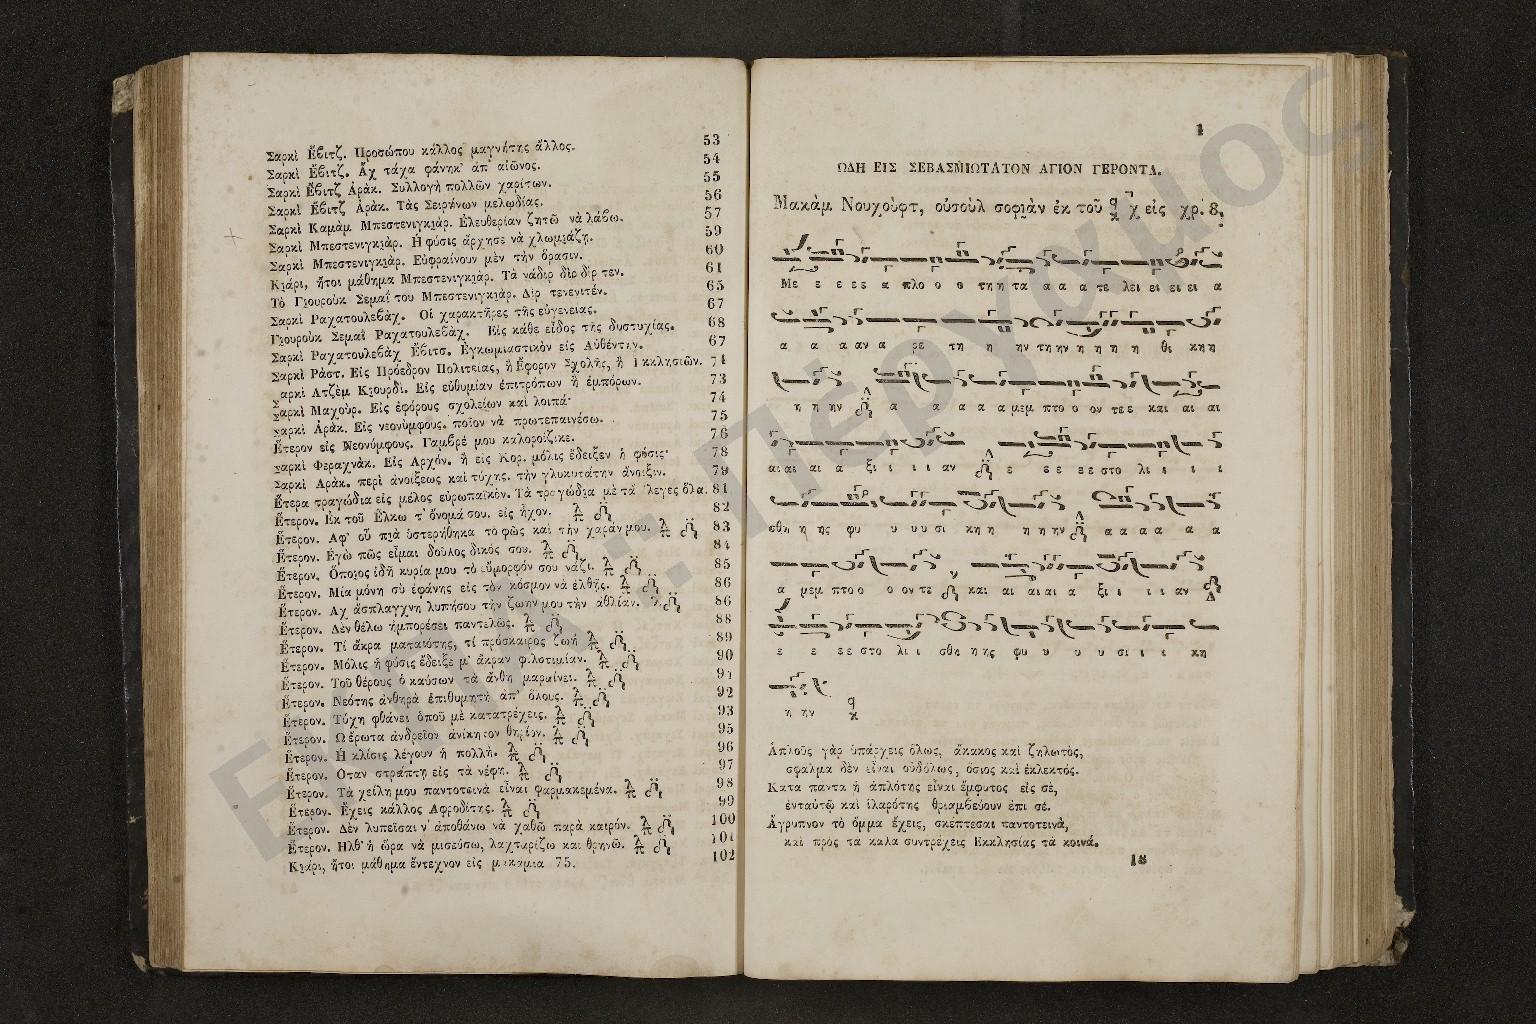 Σαρκὶ Ἕβιτζ. Προσώπου κάλλος μαγνήτης ἄλλος. 53
Σαρκὶ Ἕβιτζ. Ἂχ τάχα φάνηκ' ἀπ' αἰῶνος. 54
Σαρκὶ Ἕβιτζ Ἀράκ. Συλλογὴ πολλῶν χαρίτων. 55
Σαρκὶ Ἕβιτζ Ἀράκ. Τὰς Σειρήνων μελῳδίας. 56
Σαρκὶ Καμὰμ Μπεστενιγκιάρ. Ἐλευθερίαν ζητῶ νὰ λάβω. 57
Σαρκὶ Μπεστενιγκιάρ. Ἡ φύσις ἄρχησε νὰ χλωμιάζῃ. 59
Σαρκὶ Μπεστενιγκιάρ. Εὐφραίνουν μὲν τὴν ὅρασιν. 60
Κιάρι, ἤτοι μάθημα Μπεστενιγκιάρ. Τὰ νάδιρ δὶρ δὶρ τεν. 61
Τὸ Γιουροὺκ Σεμαΐ του Μπεστενιγκιάρ. Δὶρ τενενιτέν. 65
Σαρκὶ Ραχατουλεβάχ. Οἱ χαρακτῆρες τῆς εὐγενείας. 67
Γιουροὺκ Σεμαῒ Ραχατουλεβάχ. Εἰς κάθε εἶδος τῆς δυστυχίας. 68
Σαρκὶ Ραχατουλεβὰχ Ἔβιτσ. Ἐγκωμιαστικὸν εἰς Αὐθέντην. 67
Σαρκὶ Ράστ. Εἰς Πρόεδρον Πολιτείας, ἢ Ἔφορον Σχολῆς, ἢ Ἐκκλησιῶν. 71
Σαρκὶ Ατζὲμ Κιουρδί. Εἰς εὐθυμίαν ἐπιτρόπων ἢ ἐμπόρων. 73
Σαρκὶ Μαχούρ. Εἰς ἐφόρους σχολείων καὶ λοιπά· 74
Σαρκὶ Ἀράκ. Εἰς νεονύμφους. ποῖον νὰ πρωτεπαινέσω. 75
Ἕτερον εἰς Νεονύμφους. Γαμβρέ μου καλοροίζικε. 76
Σαρκὶ Φεραχνάκ. Εἰς Αρχόν. ἢ εἰς Κορ. μόλις ἔδειξεν ἡ φύσις· 78
Σαρκὶ Αράκ. περὶ ἀνοίξεως καὶ τύχης. τὴν γλυκυτάτην ἄνοιξιν. 79
Ἕτερα τραγώδια εἰς μέλος εὐρωπαϊκόν. Τὰ τραγώδια μὲ τὰ 'λεγες ὅλα. 81
Ἕτερον. Ἐκ τοῦ Ἕλκω τ' ὄνομά σου. εἰς ἦχον. 82
Ἕτερον. Αφ' οὗ πιὰ ὑστερήθηκα τὸ φῶς καὶ τὴν χαράν μου. 83
Ἕτερον. Ἐγὼ πῶς εἶμαι δοῦλος δικός σου. 84
Ἕτερον. Ὅποιος ἰδῇ κυρία μου τὸ εὔμορφόν σου νάζι. 85
Ἕτερον. Μία μόνη σὺ ἐφάνης εἰς τὸν κόσμον νὰ ἐλθῇς. 86
Ἕτερον. Αχ ἄσπλαγχνη λυπήσου τὴν ζωήν μου τὴν ἀθλίαν. 86
Ἕτερον. Δὲν θέλω ἠμπορέσει παντελῶς. 88
Ἕτερον. Τί ἄκρα ματαιότης, τί πρόσκαιρος ζωή 89
Ἕτερον. Μόλις ἡ φύσις ἔδειξε μ' ἄκραν φιλοτιμίαν. 90
Ἕτερον. Τοῦ θέρους ὁ καύσων τὰ ἄνθη μαραίνει. 91
Ἕτερον. Νεότης ἀνθηρὰ ἐπιθυμητὴ ἀπ' ὅλους. 92
Ἕτερον. Τύχη φθάνει ὁποῦ μὲ κατατρέχεις. 93
Ἕτερον. Ω ἔρωτα ἀνδρεῖον ἀνίκητον θηρίον. 95
Ἕτερον. Ἡ κλίσις λέγουν ἡ πολλή. 96
Ἕτερον. Οταν στράπτῃ εἰς τὰ νέφη. 97
Ἕτερον. Τὰ χείλη μου παντοτεινὰ εἶναι φαρμακεμένα. 98
Ἕτερον. Ἔχεις κάλλος Αφροδίτης. 99
Ἕτερον. Δὲν λυπεῖσαι ν' ἀποθάνω νὰ χαθῶ παρὰ καιρόν. 100
Ἕτερον. Ηλθ' ἡ ὥρα νὰ μισεύσω, λαχταρίζω και θρηνῶ. 101
Κιάρι, ἤτοι μάθημα ἔντεχνον εἰς μακάμια 75. 102
1
ΩΔΗ ΕΙΣ ΣΕΒΑΣΜΙΩΤΑΤΟΝ ΑΓΙΟΝ ΓΕΡΟΝΤΑ.
Μακὰμ Νουχοὺφτ, οὐσοὺλ σοφιὰν ἐκ τοῦ χ εἰς χρ. 8.
Με ε ε ε ε α πλο ο ο τη η τα α α α τε λει ει ει ει α
α α α αν α ρε τη η ην την ην η η η θι κη η
η η ην α α α α α μεμ πτο ο ον τε ε και αι αι
αι αι αι α ξι ι ι ι αν ε ε ε ε ε στο λι ι ι ι
σθη η ης φυ υ υ υ σι κη η η η ην α α α α α α
α μεμ πτο ο ο ον τε και αι αι αι α ξι ι ι ι αν
ε ε ε ε στο λι ι σθη η ης φυ υ υ υ σι ι ι κη
η ην
Ἁπλοῦς γὰρ ὑπάρχεις ὅλως, ἄκακος καὶ ζηλωτὸς,
σφάλμα δὲν εἶναι οὐδόλως, ὅσιος καὶ ἐκλεκτός.
Κατα πάντα ἡ ἁπλότης εἶναι ἔμφυτος εἰς σὲ,
ἐνταὐτῷ καὶ ἱλαρότης θριαμβεύουν ἐπι σέ.
Ἄγρυπνον τὸ ὄμμα ἔχεις, σκέπτεσαι παντοτεινὰ,
καὶ πρὸς τα καλα συντρέχεις Εκκλησίας τὰ κοινά.
18